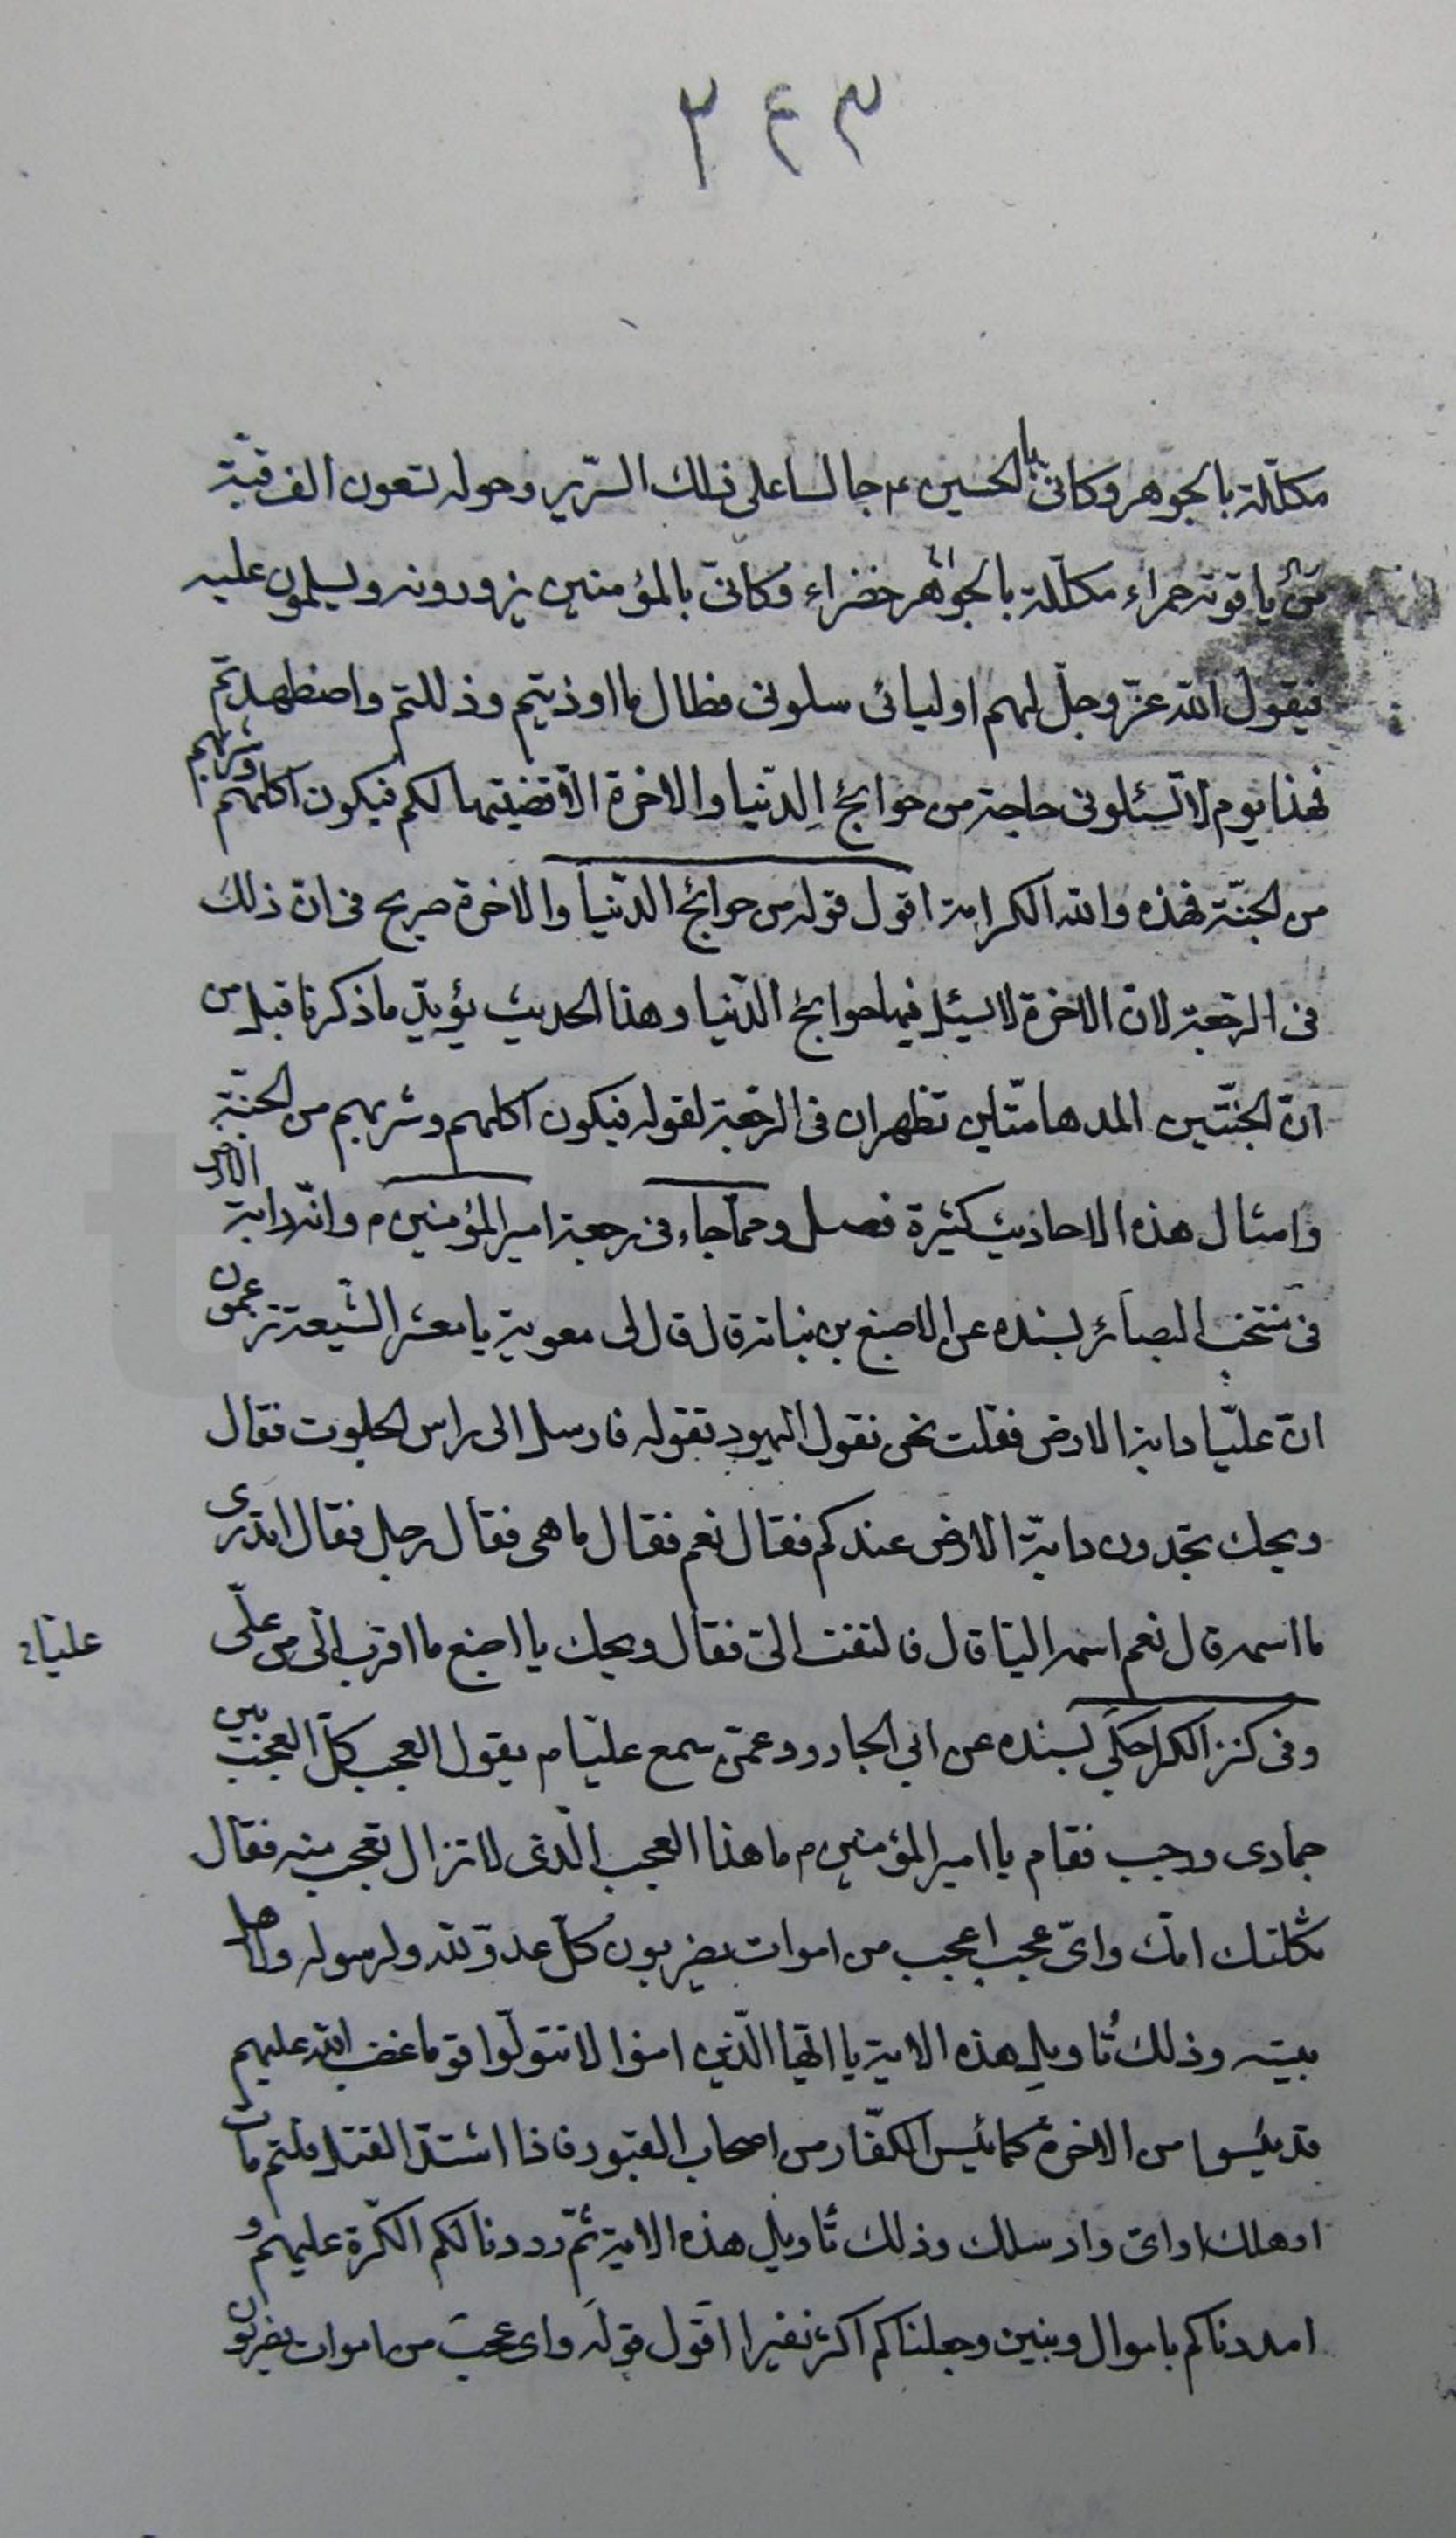 ٣٤٢
مكلّلة بالجوهر وكانى بالحسين ع جالسا على ذلك السّرير وحوله تسعون الف قبّة
من ياقوتة حمراء مكلّلة بالجواهر خضراء وكانى بالمؤمنين يزورونه ويسلمون عليه
فيقول الله عزّ وجلّ لهم اوليائى سلونى فطال ما اوذيتم وذللتم واضطهدتم
فهذا يوم لا تسئلونى حاجة من حوائج الدّنيا والاخرة الّا قضيتها لكم فيكون اكلهم وشربهم
من الجنّة فهذه والله الكرامة اقول قوله من حوائج الدّنيا والاخرة صريح فى ان ذلك
فى الرجعة لانّ الاخرة لا يسئل فيها حوائج الدّنيا وهذا الحديث يؤيد ما ذكرنا قبل من
انّ الجنّتين المدهامّتين تظهران فى الرجعة لقوله فيكون اكلهم وشربهم من الجنّة
وامثال هذه الاحاديث كثيرة فصل ومما جاء فى رجعة امير المؤمنين م وانّه دابة الارض
فى منتخب البصائر بسنده عن الاصبغ بن نباتة قال قال لى معوية يا معشر الشّيعة تزعمون
انّ عليّا دابة الارض فقلت نحن نقول اليهود تقوله فارسل الى راس الجلوت فقال
ويحك تجدون دابّة الارض عندكم فقال نعم فقال ما هى فقال رجل فقال اتدرى
ما اسمه قال نعم اسمه اليّا قال فالتفت الىّ فقال ويحك يا اصبغ ما اقرب اليّ من علىّ
عليّاء
وفى كنز الكراجكي بسنده عن ابى الجارود عمّن سمع عليّا م يقول العجب كلّ العجب بين
جمادى ورجب فقام يا امير المؤمنين م ما هذا العجب الّذى لا تزال تعجب منه فقال
ثكلتك امّك واىّ عجب اعجب من اموات يضربون كلّ عدوّ لله ولرسوله ولاهل
بيته وذلك تأويل هذه الاية يا ايّها الّذين امنوا لا تتولّوا قوما غضب الله عليهم
قد يئسوا من الاخرة كما يئس الكفّار من اصحاب القبور فاذا اشتدّ القتل قلتم مات
او هلك او اىّ واد سلك وذلك تأويل هذه الاية ثمّ رددنا لكم الكرّة عليهم و
امددناكم باموال وبنين وجعلناكم اكثر نفيرا اقول قوله واى عجب من اموات يضربون